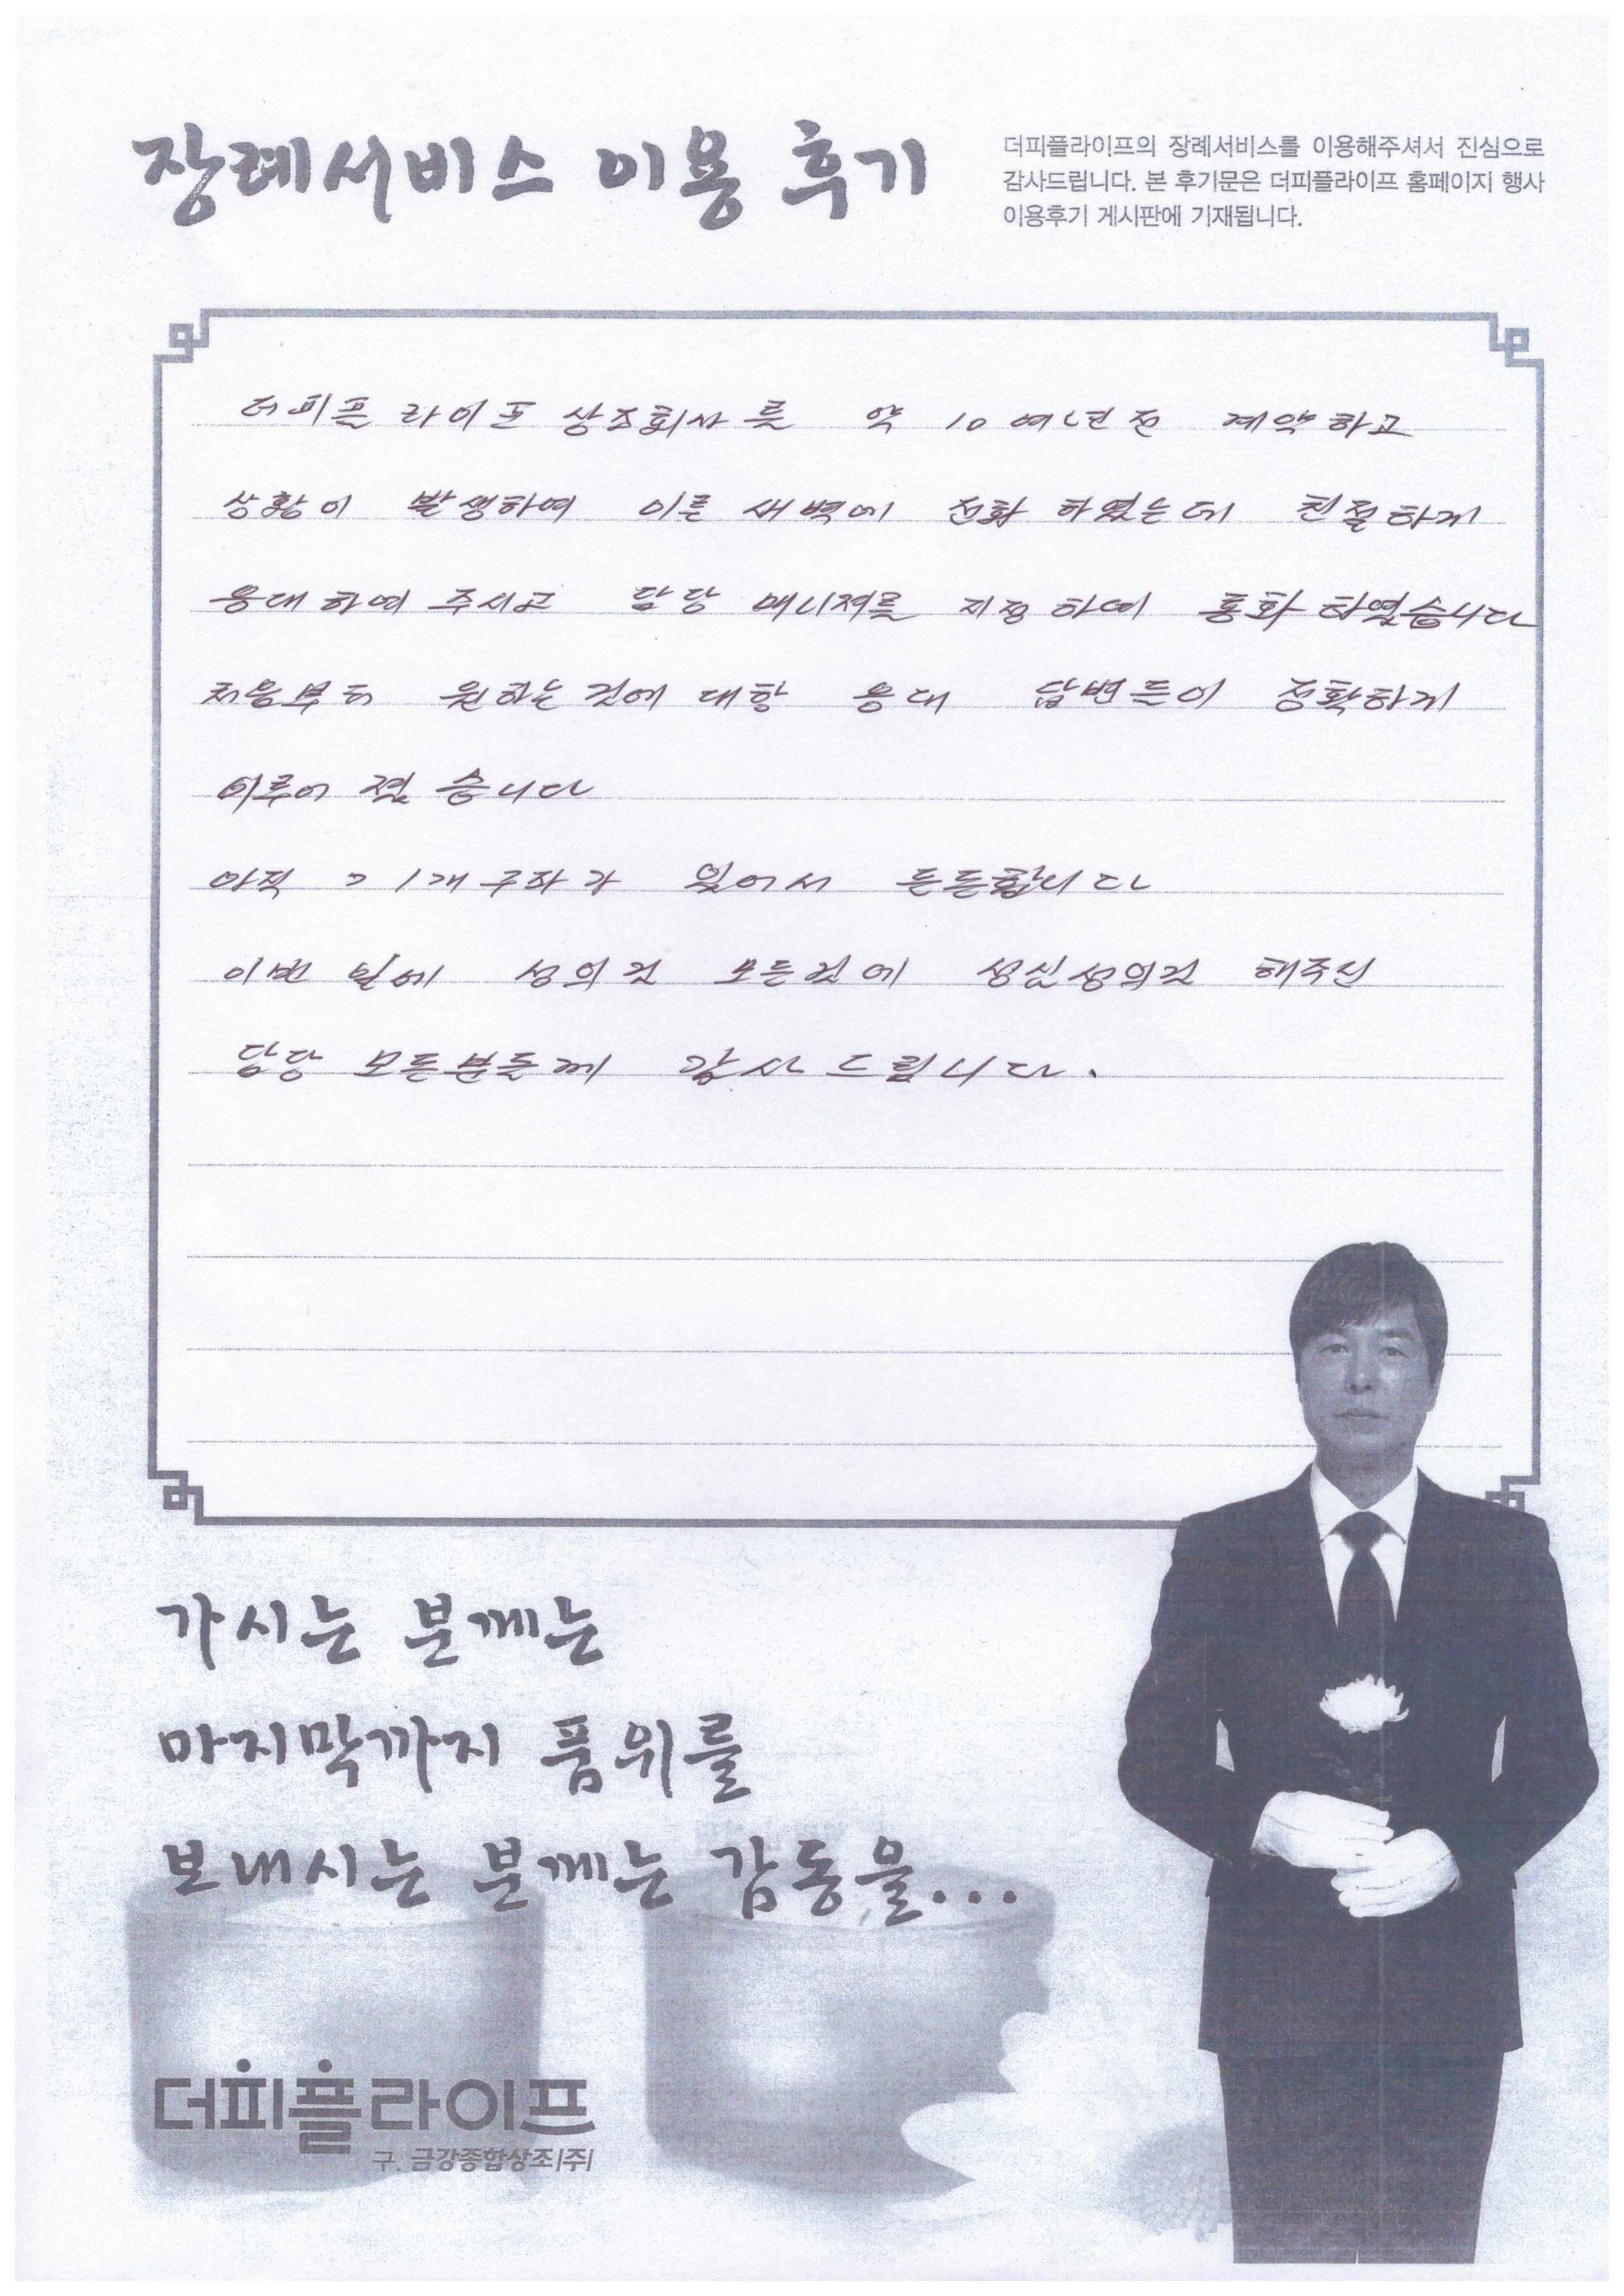 장례서비스 이용 후기
더피플라이프의 장례서비스를 이용해주셔서 진심으로
감사드립니다. 본 후기문은 더피플라이프 홈페이지 행사
이용후기 게시판에 기재됩니다.
더피플 라이프 상조회사를 약 10여년전 계약하고
상황이 발생하여 이른 새벽에 전화 하였는데 친절하게
응대하여 주시고 담당 매니져를 지정하여 통화 하였습니다
처음부터 원하는것에 대항 응대 답변등이 정확하게
이루어 졌습니다
아직 1개 구좌가 있어서 든든합니다
이번 일에 성의것 모든것에 성심성의것 해주신
담당 모든분들께 감사드립니다.
가시는 분께는
마지막까지 품위를
보내시는 분께는 감동을...
더피플라이프
구. 금강종합상조(주)